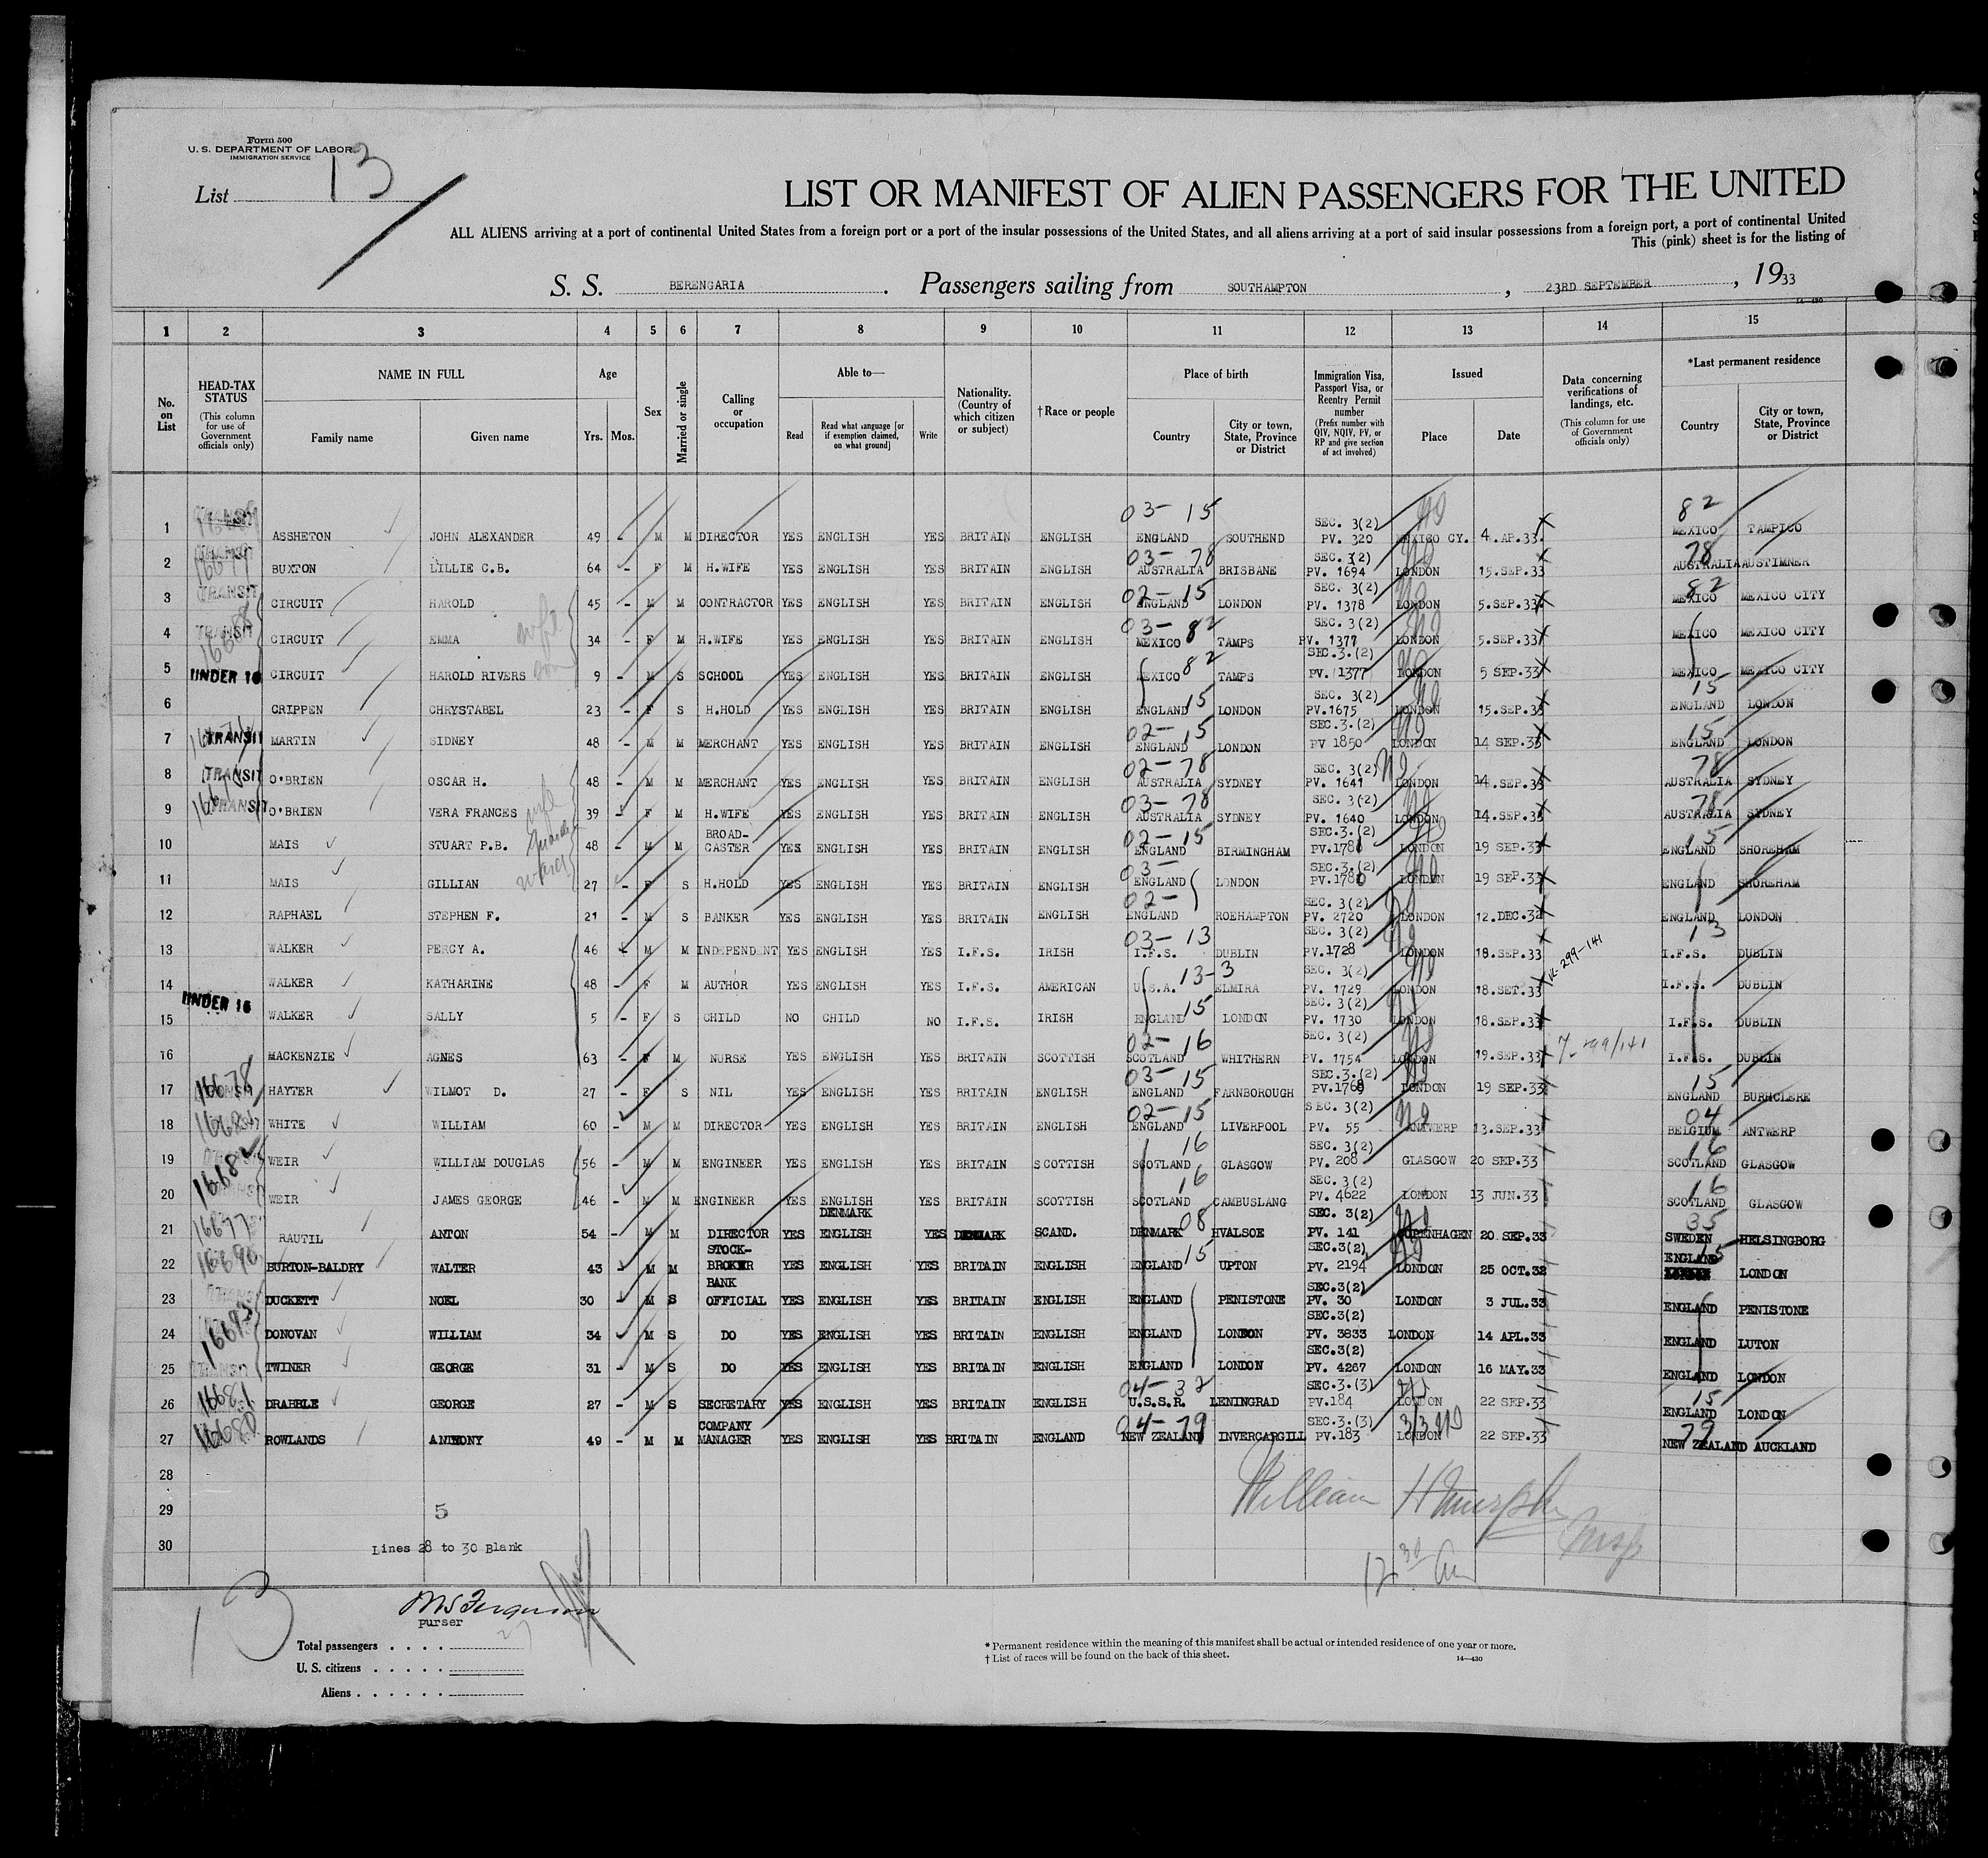 Form 500
U. S. DEPARTMENT OF LABOR
IMMIGRATION SERVICE
List 13
LIST OR MANIFEST OF ALIEN PASSENGERS FOR THE UNITED
ALL ALIENS arriving at a port of continental United States from a foreign port or a port of the insular possessions of the United States, and all aliens arriving at a port of said insular possessions from a foreign port, a port of continental United
This (pink) sheet is for the listing of
S. S. BERENGARIA . Passengers sailing from SOUTHAMPTON , 23RD SEPTEMBER , 1933
14—430
1 2 3 4 5 6 7 8 9 10 11 12 13 14 15
No. on List
HEAD-TAX STATUS (This column for use of Government officials only)
NAME IN FULL Family name Given name
Age Yrs. Mos.
Sex
Married or single
Calling or occupation
Able to— Read Read what language [or if exemption claimed, on what ground] Write
Nationality. (Country of which citizen or subject)
†Race or people
Place of birth Country City or town, State, Province or District
Immigration Visa, Passport Visa, or Reentry Permit number (Prefix number with QIV, NQIV, PV, or RP and give section of act involved)
Issued Place Date
Data concerning verifications of landings, etc. (This column for use of Government officials only)
*Last permanent residence Country City or town, State, Province or District
03-15 82
1 ASSHETON JOHN ALEXANDER 49 - M M DIRECTOR YES ENGLISH YES BRITAIN ENGLISH ENGLAND SOUTHEND SEC. 3(2) PV. 320 MEXICO CY. 4.AP.33. MEXICO TAMPICO
03-78 78
2 BUXTON LILLIE C.B. 64 - F M H.WIFE YES ENGLISH YES BRITAIN ENGLISH AUSTRALIA BRISBANE SEC. 3(2) PV. 1694 LONDON 15.SEP.33 AUSTRALIA AUSTIMNER
TRANSIT 02-15 82
3 CIRCUIT HAROLD 45 - M M CONTRACTOR YES ENGLISH YES BRITAIN ENGLISH ENGLAND LONDON SEC. 3(2) PV. 1378 LONDON 5.SEP.33 MEXICO MEXICO CITY
TRANSIT wife 03-82
4 CIRCUIT EMMA 34 - F M H.WIFE YES ENGLISH YES BRITAIN ENGLISH MEXICO TAMPS SEC. 3(2) PV. 1377 LONDON 5.SEP.33 MEXICO MEXICO CITY
UNDER 16 son 82
5 CIRCUIT HAROLD RIVERS 9 - M S SCHOOL YES ENGLISH YES BRITAIN ENGLISH MEXICO TAMPS SEC.3.(2) PV. 1377 LONDON 5 SEP.33 MEXICO MEXICO CITY
15 15
6 CRIPPEN CHRYSTABEL 23 - F S H.HOLD YES ENGLISH YES BRITAIN ENGLISH ENGLAND LONDON SEC. 3(2) PV.1675 LONDON 15.SEP.33 ENGLAND LONDON
TRANSIT 02-15 15
7 MARTIN SIDNEY 48 - M M MERCHANT YES ENGLISH YES BRITAIN ENGLISH ENGLAND LONDON SEC.3.(2) PV 1850 LONDON 14 SEP.33 ENGLAND LONDON
TRANSIT 02-78 78
8 O'BRIEN OSCAR H. 48 - M M MERCHANT YES ENGLISH YES BRITAIN ENGLISH AUSTRALIA SYDNEY SEC. 3(2) PV. 1641 LONDON 14.SEP.33 AUSTRALIA SYDNEY
TRANSIT wife 03-78 78
9 O'BRIEN VERA FRANCES 39 - F M H.WIFE YES ENGLISH YES BRITAIN ENGLISH AUSTRALIA SYDNEY SEC. 3(2) PV. 1640 LONDON 14.SEP.33 AUSTRALIA SYDNEY
02-15 15
10 MAIS STUART P.B. 48 - M M BROAD-CASTER YES ENGLISH YES BRITAIN ENGLISH ENGLAND BIRMINGHAM SEC.3.(2) PV.1781 LONDON 19 SEP.33 ENGLAND SHOREHAM
ward 03-
11 MAIS GILLIAN 27 - F S H.HOLD YES ENGLISH YES BRITAIN ENGLISH ENGLAND LONDON SEC.3.(2) PV.1780 LONDON 19 SEP.33 ENGLAND SHOREHAM
02-
12 RAPHAEL STEPHEN F. 21 - M S BANKER YES ENGLISH YES BRITAIN ENGLISH ENGLAND ROEHAMPTON SEC. 3(2) PV. 2720 LONDON 12.DEC.32 ENGLAND LONDON
03-13 13
13 WALKER PERCY A. 46 - M M INDEPENDENT YES ENGLISH YES I.F.S. IRISH I.F.S. DUBLIN SEC. 3(2) PV.1728 LONDON 18.SEP.33 I.F.S. DUBLIN
13-3 299-141
14 WALKER KATHARINE 48 - F M AUTHOR YES ENGLISH YES I.F.S. AMERICAN U.S.A. ELMIRA SEC. 3(2) PV. 1729 LONDON 18.SET.33 I.F.S. DUBLIN
UNDER 16 15
15 WALKER SALLY 5 - F S CHILD NO CHILD NO I.F.S. IRISH ENGLAND LONDON SEC. 3(2) PV. 1730 LONDON 18.SEP.33 I.F.S. DUBLIN
02-16
16 MACKENZIE AGNES 63 - F M NURSE YES ENGLISH YES BRITAIN SCOTTISH SCOTLAND WHITHERN SEC. 3(2) PV. 1754 LONDON 19.SEP.33 I.F.S. DUBLIN
16678 03-15 15
17 HAYTER WILMOT D. 27 - F S NIL YES ENGLISH YES BRITAIN ENGLISH ENGLAND FARNBOROUGH SEC.3.(2) PV.1768 LONDON 19 SEP.33 ENGLAND BURHCLERE
02-15 04
18 WHITE WILLIAM 60 - M M DIRECTOR YES ENGLISH YES BRITAIN ENGLISH ENGLAND LIVERPOOL SEC. 3(2) PV. 55 ANTWERP 13.SEP.33 BELGIUM ANTWERP
16682 16 16
19 WEIR WILLIAM DOUGLAS 56 - M M ENGINEER YES ENGLISH YES BRITAIN SCOTTISH SCOTLAND GLASGOW SEC. 3(2) PV. 208 GLASGOW 20 SEP.33 SCOTLAND GLASGOW
16 16
20 WEIR JAMES GEORGE 46 - M M ENGINEER YES ENGLISH YES BRITAIN SCOTTISH SCOTLAND CAMBUSLANG SEC. 3(2) PV. 4622 LONDON 13 JUN.33 SCOTLAND GLASGOW
16677 08 35
21 RAUTIL ANTON 54 - M M DIRECTOR YES DENMARK ENGLISH YES DENMARK SCAND. DENMARK HVALSOE SEC. 3(2) PV. 141 COPENHAGEN 20 SEP.33 SWEDEN HELSINGBORG
16690 15 15
22 BURTON-BALDRY WALTER 43 - M M STOCK-BROKER YES ENGLISH YES BRITAIN ENGLISH ENGLAND UPTON SEC.3(2) PV. 2194 LONDON 25 OCT.32 ENGLAND LONDON
23 DUCKETT NOEL 30 - M S BANK OFFICIAL YES ENGLISH YES BRITAIN ENGLISH ENGLAND PENISTONE SEC.3(2) PV. 30 LONDON 3 JUL.33 ENGLAND PENISTONE
16693
24 DONOVAN WILLIAM 34 - M S DO YES ENGLISH YES BRITAIN ENGLISH ENGLAND LONDON SEC.3(2) PV. 3833 LONDON 14 APL.33 ENGLAND LUTON
TRANSIT
25 TWINER GEORGE 31 - M S DO YES ENGLISH YES BRITAIN ENGLISH ENGLAND LONDON SEC.3(2) PV. 4267 LONDON 16 MAY.33 ENGLAND LONDON
16681 04-32 15
26 DRABBLE GEORGE 27 - M S SECRETARY YES ENGLISH YES BRITAIN ENGLISH U.S.S.R. LENINGRAD SEC.3.(3) PV.184 LONDON 22 SEP.33 ENGLAND LONDON
16680 04-79 79
27 ROWLANDS ANTHONY 49 - M M COMPANY MANAGER YES ENGLISH YES BRITAIN ENGLAND NEW ZEALAND INVERCARGILL SEC.3.(3) PV.183 LONDON 22 SEP.33 NEW ZEALAND AUCKLAND
28
29 5
30 Lines 28 to 30 Blank
William H Murphy
Insp
12 30 Am
13
Ferguson
purser
Total passengers . . . . 27
U. S. citizens . . . . .
Aliens . . . . . .
* Permanent residence within the meaning of this manifest shall be actual or intended residence of one year or more.
† List of races will be found on the back of this sheet.
14—430